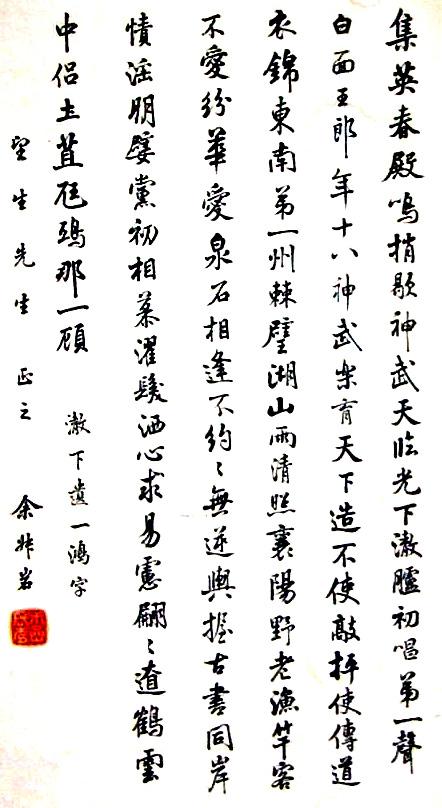 集英春殿鳴捎歇神武天臨光下澈臚初唱第一聲
白面王郎年十八神武樂育天下造不使敲抨使傳道
衣錦東南第一州棘璧湖山兩清照襄陽野老漁竿客
不愛紛華愛泉石相逢不約〻無逆輿握古書同岸
幘淫朋嬖黨初相慕濯髮洒心求易慮翩〻遼鶴雲
中侶土苴尫鴟那一顧
澈下遺一鴻字
望生先生正之
余叔岩